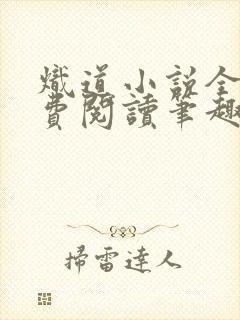 熾道小說全
費閱讀筆趣
掃雷達人